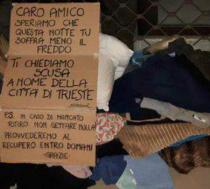 CARO AMICO
SPERIAMO CHE
QUESTA NOTTE TU
SOFFRA MENO IL
FREDDO
TI CHIEDIAMO
SCUSA
A NOME DELLA
CITTÀ DI TRIESTE
P.S. IN CASO DI MANCATO
RITIRO NON GETTARE NULLA
PROVVEDEREMO AL
RECUPERO ENTRO DOMANI
GRAZIE